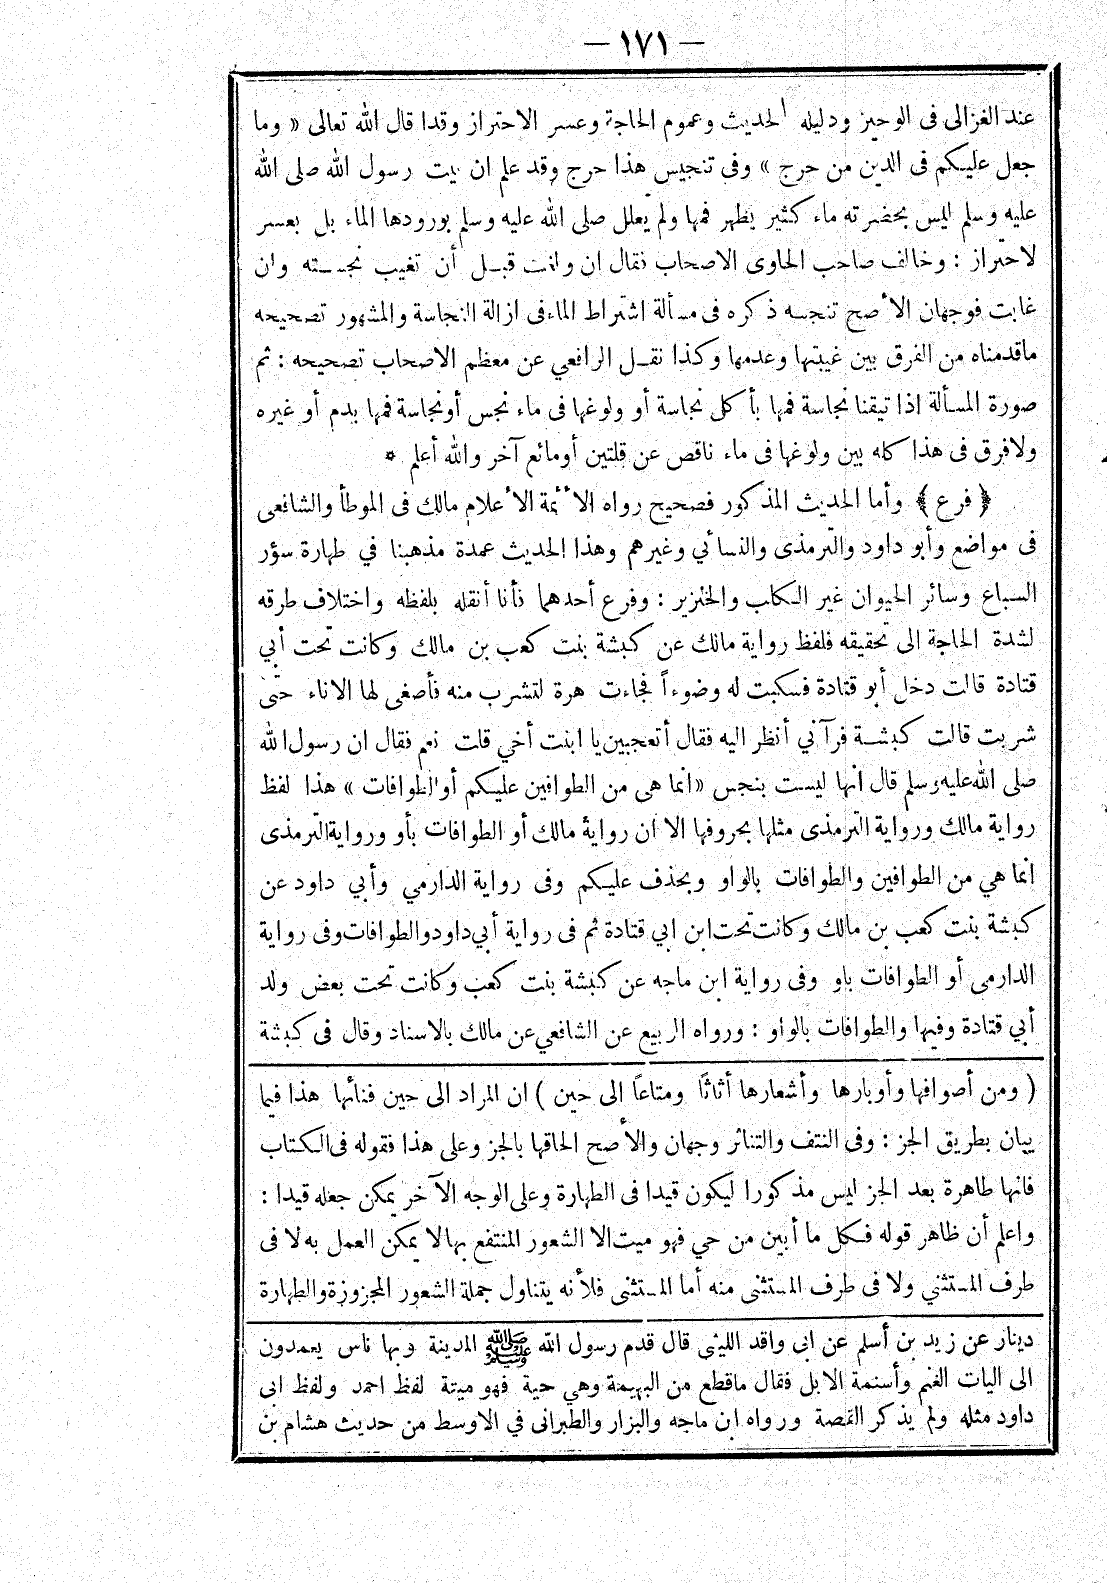 — ١٧١ —
عند الغزالى فى الوجيز ودليله الحديث وعموم الحاجة وعسر الاحتراز وقدا قال الله تعالى « وما
جعل عليكم فى الدين من حرج » وفى تنجيس هذا حرج وقد علم ان بيت رسول الله صلى الله
عليه وسلم ليس بحضرته ماء كثير يطهر فمها ولم يعلل صلى الله عليه وسلم بورودها الماء بل بعسر
لاحتراز : وخالف صاحب الحاوى الاصحاب نقال ان ولغت قبل أن تغيب نجسته وان
غابت فوجهان الأصح تنجسه ذكره فى مسألة اشتراط الماء فى ازالة النجاسة والمشهور تصحيحه
ماقدمناه من الفرق بين غيبتها وعدمها وكذا نقل الرافعي عن معظم الاصحاب تصحيحه : ثم
صورة المسألة اذا تيقنا نجاسة فمها بأكل نجاسة أو ولوغها فى ماء نجس أونجاسة فمها بدم أو غيره
ولافرق فى هذا كله بين ولوغها فى ماء ناقص عن قلتين أومائع آخر والله أعلم *
﴿ فرع ﴾ وأما الحديث المذكور فصحيح رواه الأئمة الأعلام مالك فى الموطأ والشافعى
فى مواضع وأبو داود والترمذى والنسائي وغيرهم وهذا الحديث عمدة مذهبنا في طهارة سؤر
السباع وسائر الحيوان غير الكلب والخنزير : وفرع أحدهما نأنا أنقله بلفظه واختلاف طرقه
لشدة الحاجة الى تحقيقه فلفظ رواية مالك عن كبشة بنت كعب بن مالك وكانت تحت أبي
قتادة قالت دخل أبو قتادة فسكبت له وضوءاً فجاءت هرة لتشرب منه فأصغى لها الاناء حتى
شربت قالت كبشة فرآني أنظر اليه فقال أتعجبين يا ابنت أخي قلت نعم فقال ان رسول الله
صلى الله عليه وسلم قال انها ليست بنجس «انما هى من الطوافين عليكم أو الطوافات » هذا لفظ
رواية مالك ورواية الترمذى مثلها بحروفها الا ان رواية مالك أو الطوافات بأو ورواية الترمذى
انما هي من الطوافين والطوافات بالواو وبحذف عليكم وفى رواية الدارمي وأبي داود عن
كبشة بنت كعب بن مالك وكانت تحت ابن ابي قتادة ثم فى رواية أبي داود والطوافات وفى رواية
الدارمى أو الطوافات باو وفى رواية ابن ماجه عن كبشة بنت كعب وكانت تحت بعض ولد
أبي قتادة وفيها والطوافات بالواو : ورواه الربيع عن الشافعي عن مالك بالاسناد وقال فى كبشة
( ومن أصوافها وأوبارها وأشعارها أثاثًا ومتاعًا الى حين ) ان المراد الى حين فنائها هذا فيما
يبان بطريق الجز : وفى النتف والتناثر وجهان والأصح الحاقها بالجز وعلى هذا فقوله فى الكتاب
فانها طاهرة بعد الجز ليس مذكورا ليكون قيدا فى الطهارة وعلى الوجه الآخر يمكن جعله قيدا :
واعلم أن ظاهر قوله فكل ما أبين من حي فهو ميت الا الشعور المنتفع بها لا يمكن العمل به لا فى
طرف المستثني ولا فى طرف المستثنى منه أما المستثنى فلأنه يتناول جملة الشعور المجزوزة والطهارة
دينار عن زيد بن أسلم عن ابى واقد الليثى قال قدم رسول الله ﷺ المدينة وبها ناس يعمدون
الى اليات الغنم وأسنمة الابل فقال ماقطع من البهيمة وهي حية فهو ميتة لفظ احمد ولفظ ابى
داود مثله ولم يذكر القصة ورواه ابن ماجه والبزار والطبرانى في الاوسط من حديث هشام بن